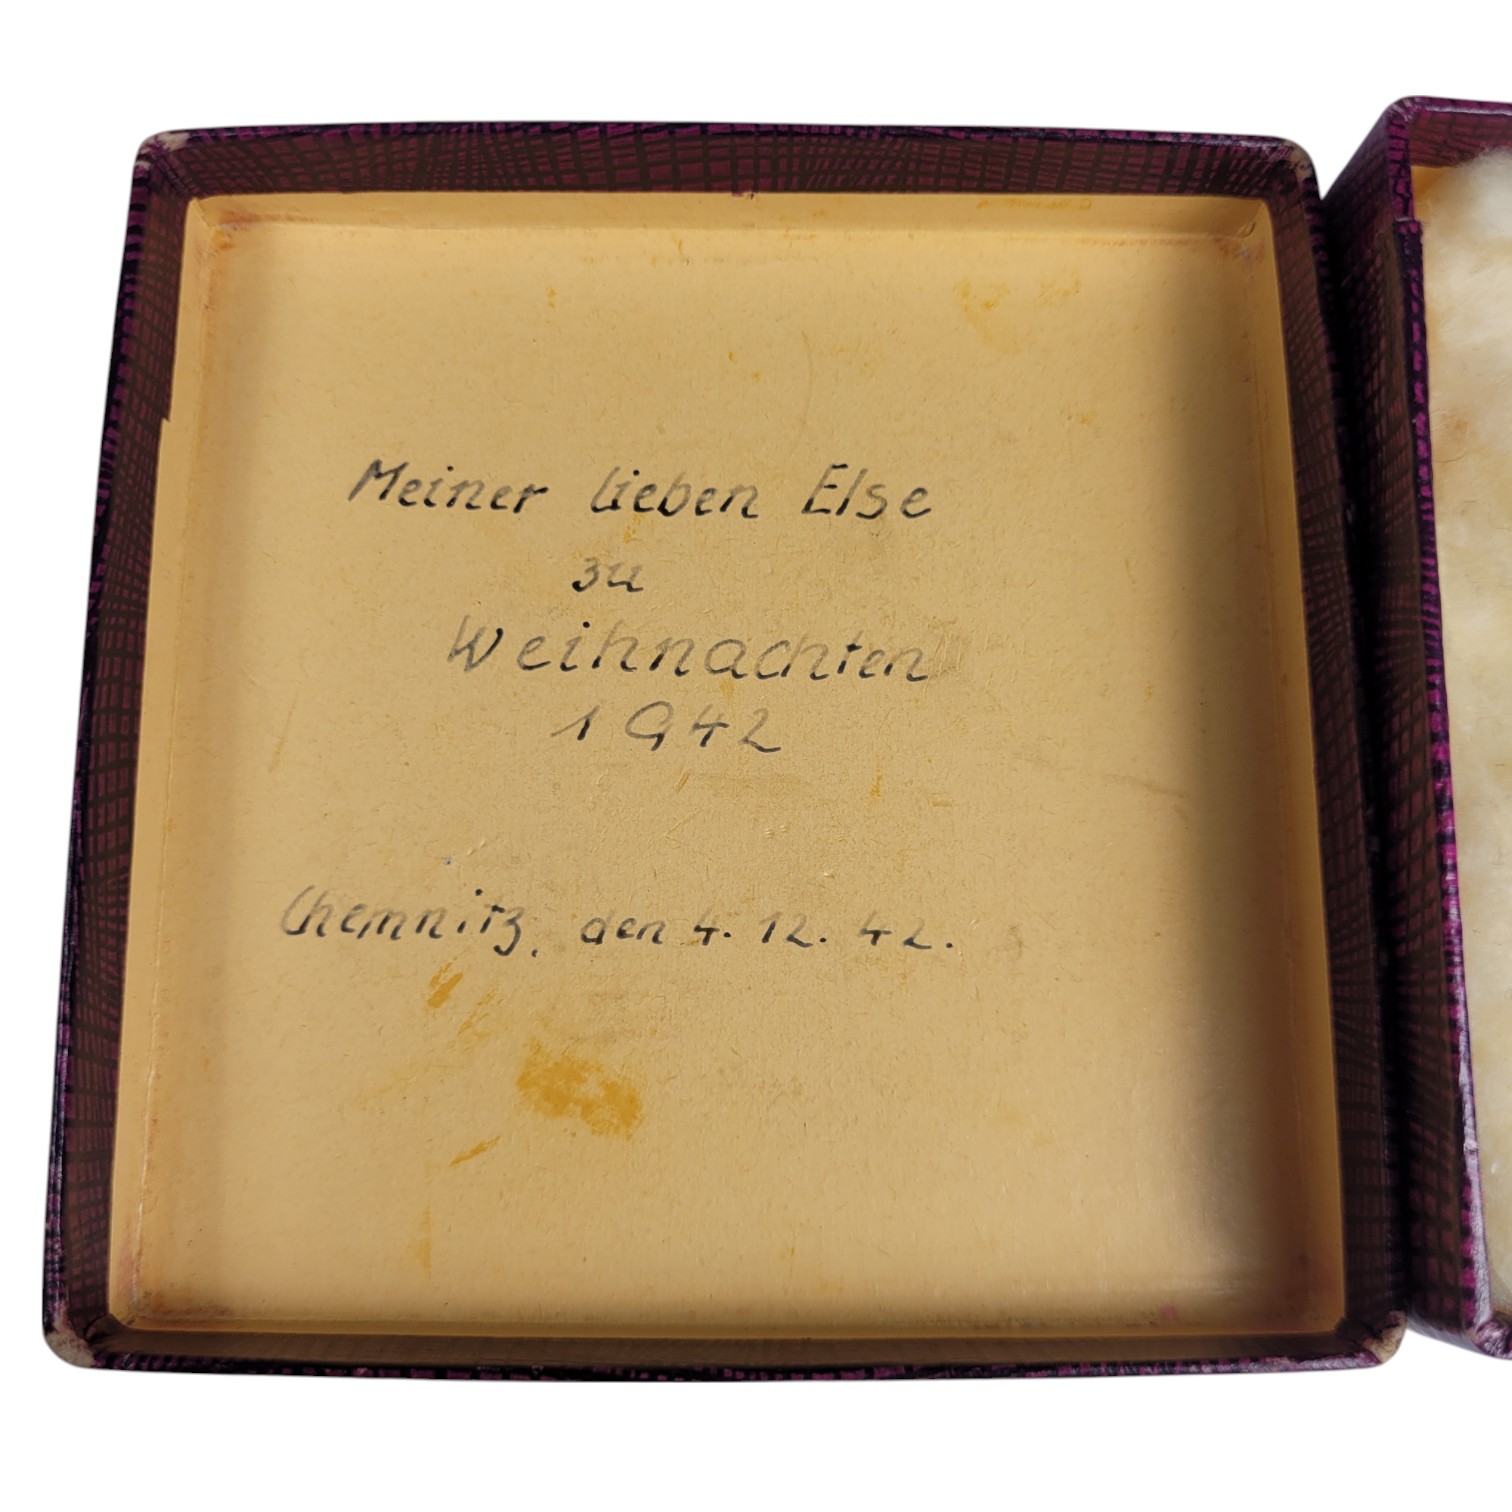 Meiner lieben Else
zu
Weihnachten
1942
Chemnitz, den 4. 12. 42.